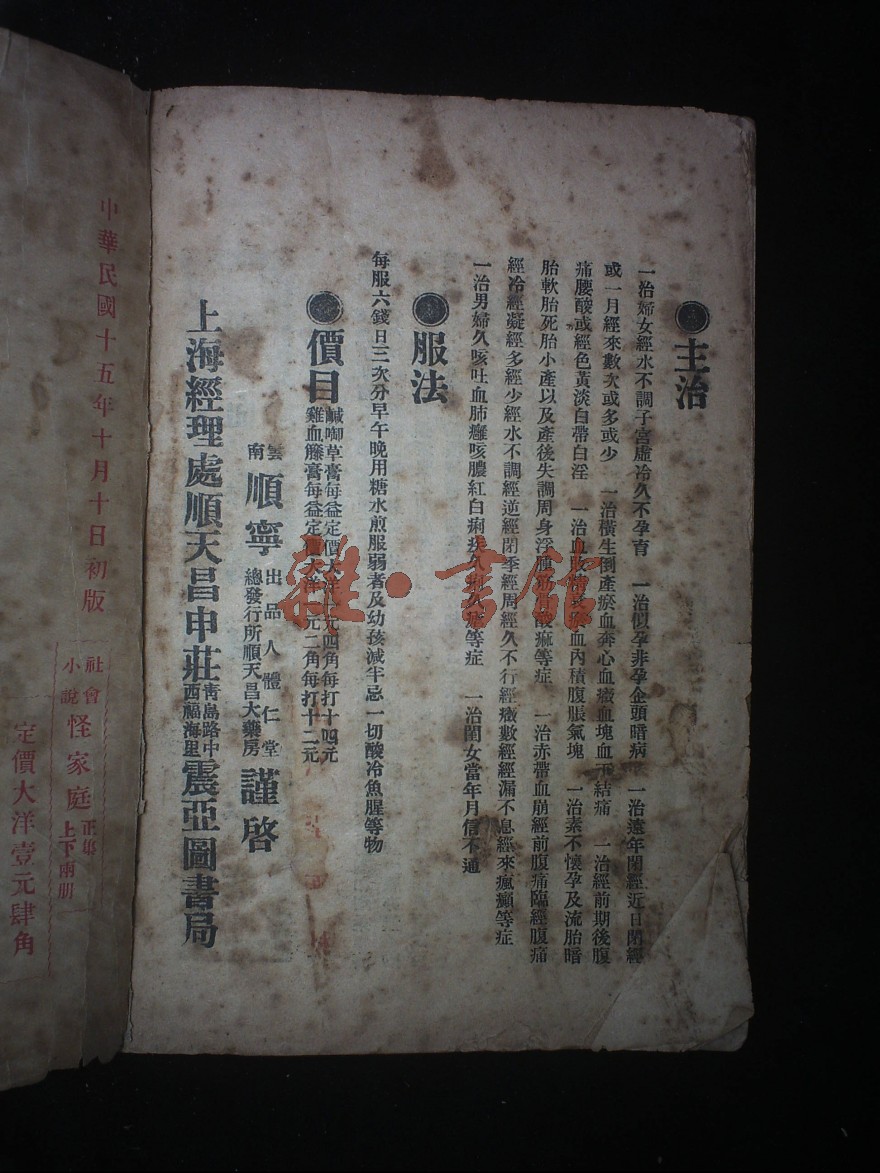 主治
一治婦女經水不調子宮虛冷久不孕育　一治似孕非孕企頭暗病　一治遠年閉經近日閉經
或一月經來數次或多或少　一治橫生倒產瘀血奔心血癥血塊血不結痛　一治經前期後腹
痛腰酸或經色黃淡白帶白淫　一治血內積腹脹氣塊　一治素不懷孕及流胎暗
胎軟胎死胎小產以及產後失調周身浮腫酸麻等症　一治赤帶血崩經前腹痛臨經腹痛
經冷經凝經多經少經水不調經逆經閉季經周經久不行經癥數經經漏不息經來瘋癲等症
一治男婦久咳吐血肺癰咳膿紅白痢疾等症　一治閨女當年月信不通
服法
每服六錢日三次分早午晚用糖水煎服弱者及幼孩減半忌一切酸冷魚腥等物
價目
鹹啣草膏每益定價大洋元四角每打十四元
雞血籐膏每益定價大洋元二角每打十二元
雲南順寧出品人體仁堂總發行所順天昌大藥房謹啓
上海經理處順天昌申莊青島路中西福海里震亞圖書局
中華民國十五年十月十日初版
社會小說怪家庭正集上下兩册
定價大洋壹元肆角
雜·書館